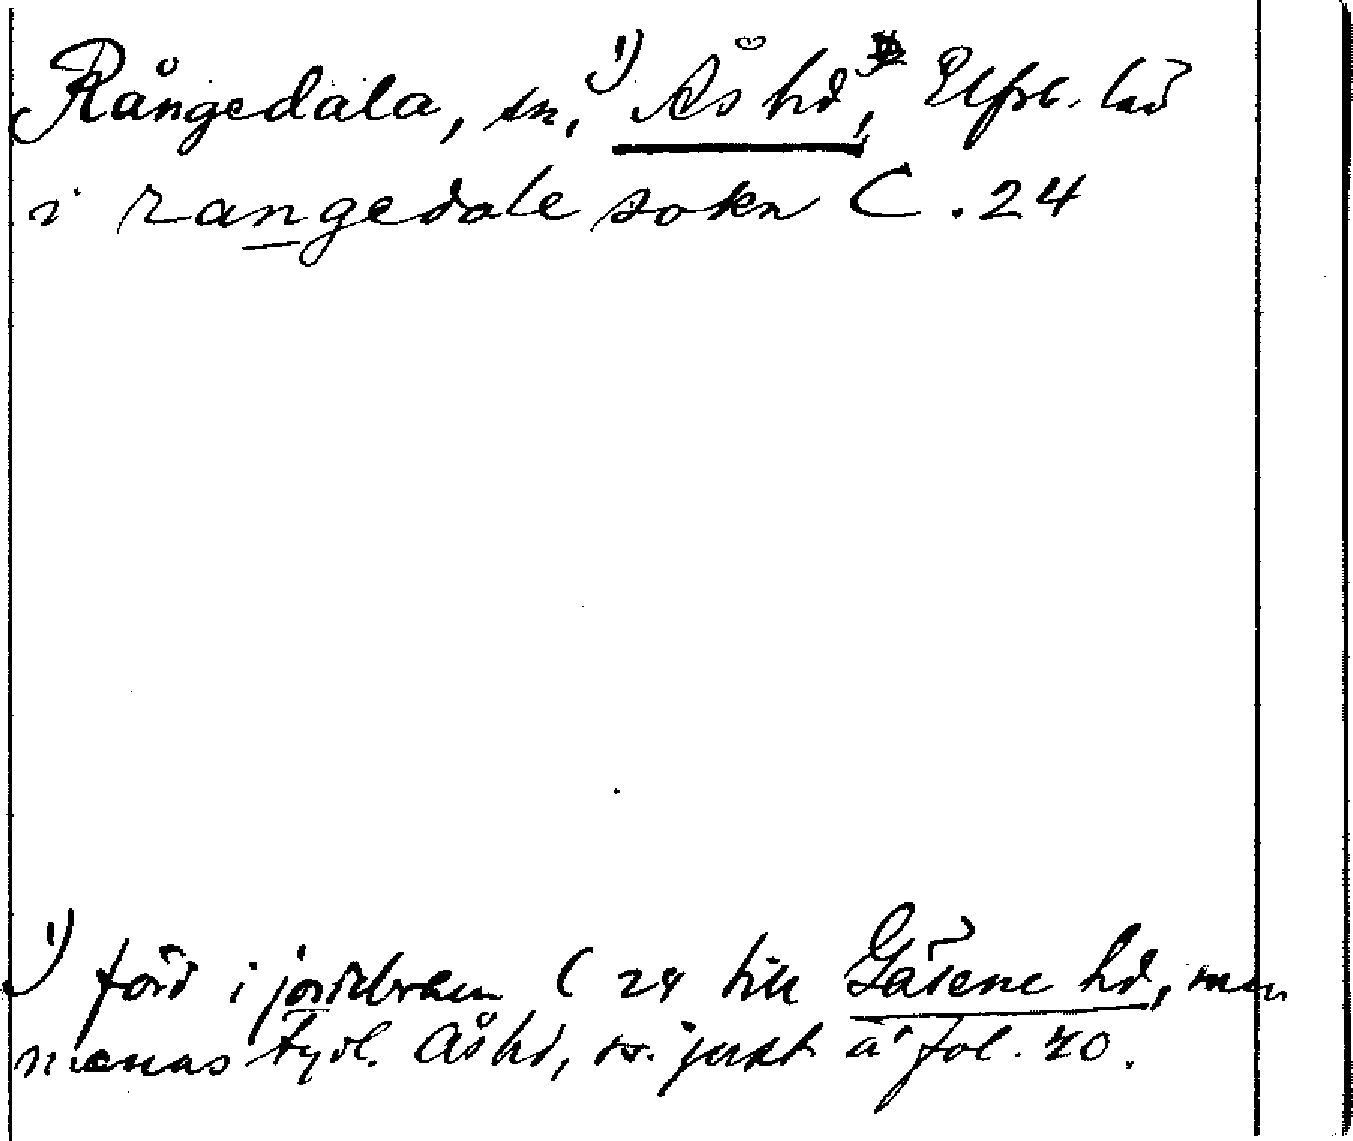 Rångedala, sn, 1) Ås hd, Elfsb. län
i rangedale sokn C. 24
1) förd i jordebrken C 24 till Gäsene hd, men
menas tydl. Ås hd, so. just å fol. 40.